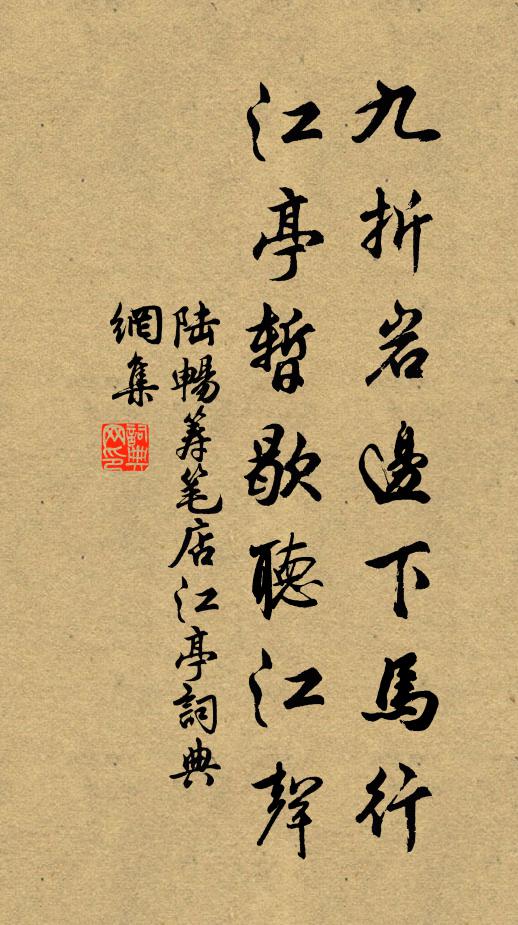 九折岩邊下馬行
江亭暫歇聽江聲
陸暢筹笔店江亭詞典
網集
詞典網印